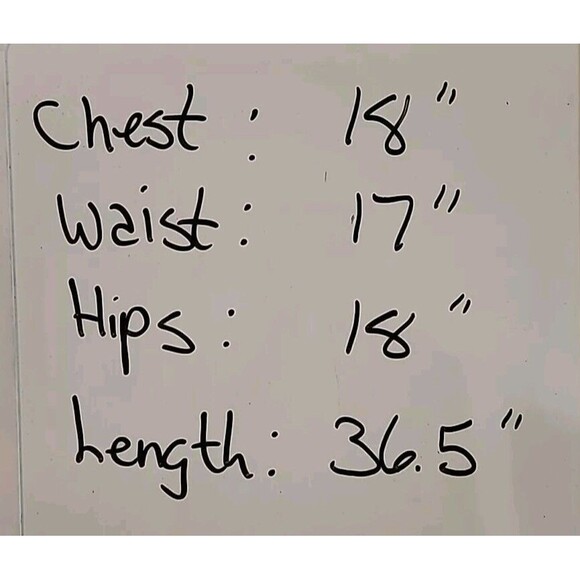 Chest: 18"
Waist: 17"
Hips: 18"
Length: 36.5"